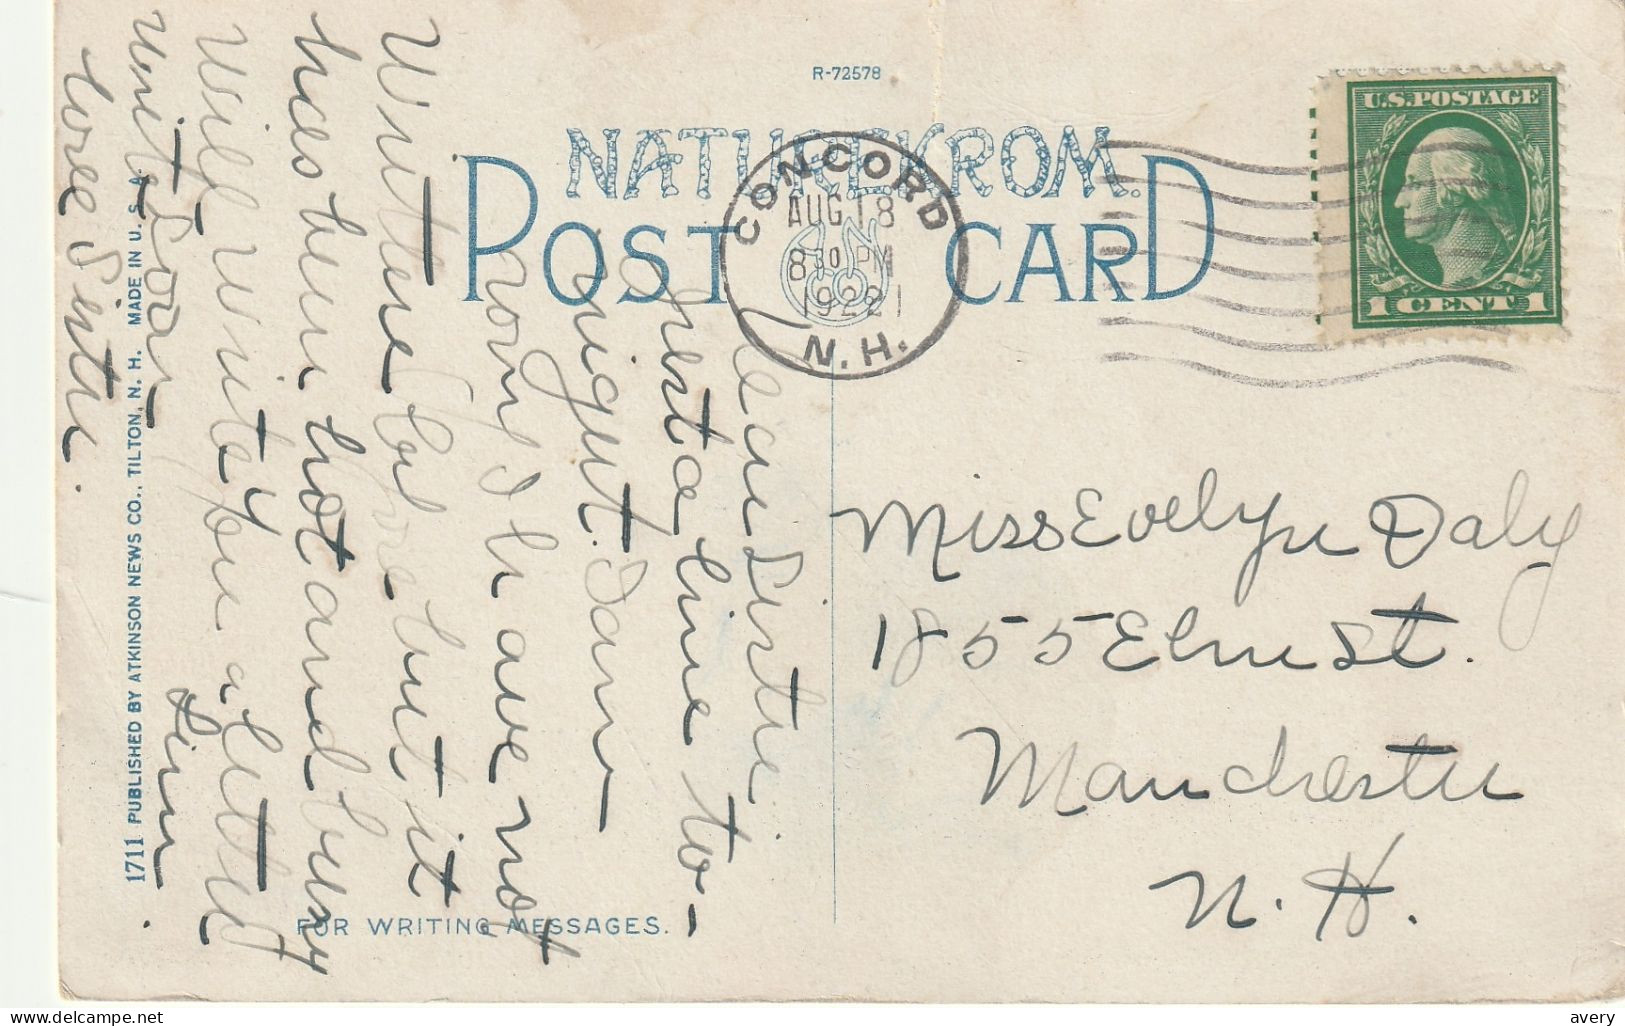 R-72578
NATUREKROM.
POST CARD
CONCORD
AUG 18
8 30 PM
1922
N.H.
U.S. POSTAGE
1 CENT 1
Dear Sister
Just a line to-
night. Iam
sorry I have not
Written before but it
has been hot and busy
Will write you a letter
Write Soon
love Sister
Miss Evelyn Daly
1855 Elm St.
Manchester
N. H.
FOR WRITING MESSAGES.
1711 PUBLISHED BY ATKINSON NEWS CO., TILTON, N. H. MADE IN U. S. A.
delcampe.net
avery